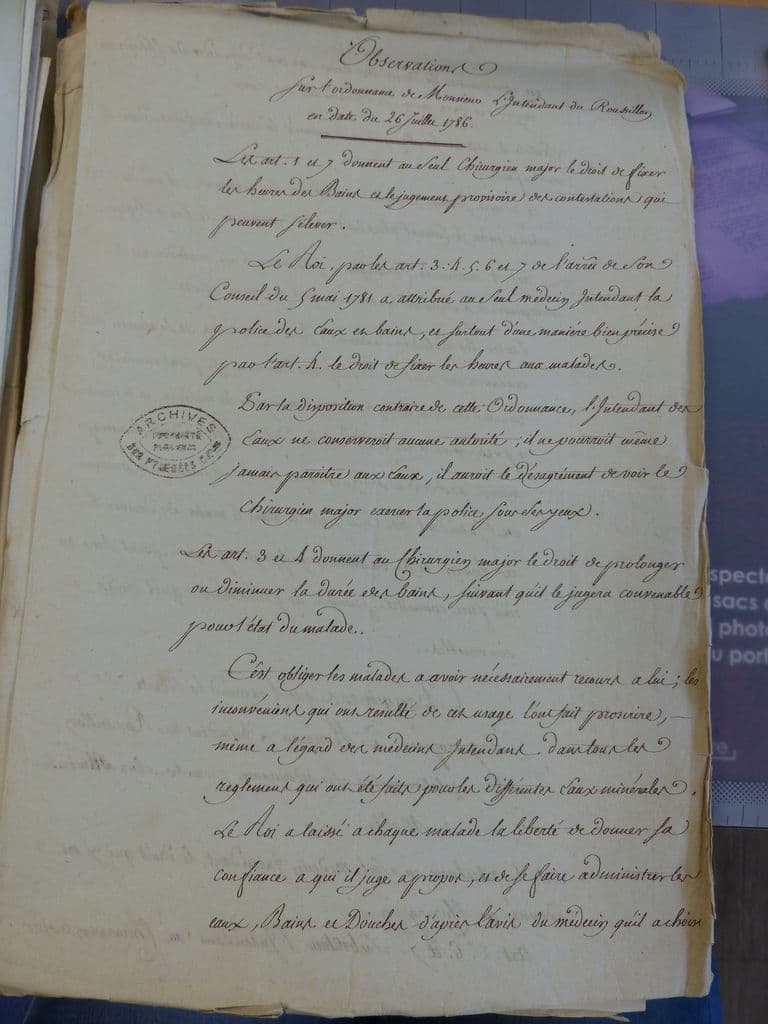 Observations
sur l'ordonnance de Monsieur L'Intendant du Roussillon
en date du 26 Juillet 1786.
Les art. 1 et 7 donnent au seul Chirurgien major le droit de fixer
les heures des Bains et le jugement provisoire des contestations qui
peuvent s'élever.
Le Roi, par les art. 3. 4. 5. 6 et 7 de l'arrêt de son
Conseil du 5 mai 1781 a attribué au seul médecin Intendant la
police des eaux et bains, et surtout d'une maniére bien précise
par l'art. 4. le droit de fixer les heures aux malades.
Par la disposition contraire de cette Ordonnance, l'Intendant des
Eaux ne conserveroit aucune autorité; il ne pourroit même
jamais paroitre aux Eaux, il auroit le désagrément de voir le
Chirurgien major exercer la police sous ses yeux.
ARCHIVES
Les art. 3 et 4 donnent au Chirurgien major le droit de prolonger
ou diminuer la durée des bains, suivant qu'il le jugera convenable
pour l'état du malade.
C'est obliger les malades a avoir nécessairement recours a lui; les
inconvéniens qui ont resulté de cet usage l'ont fait proscrire,
même a l'égard des médecins Intendans. dans tous les
reglemens qui ont été faits pour les différentes Eaux minérales.
Le Roi a laissé a chaque malade la liberté de donner sa
confiance a qui il juge apropos, et de se faire administrer les
eaux, Bains et Douches d'après l'avis du médecin qu'il a choisi
spect
sacs
photo
port